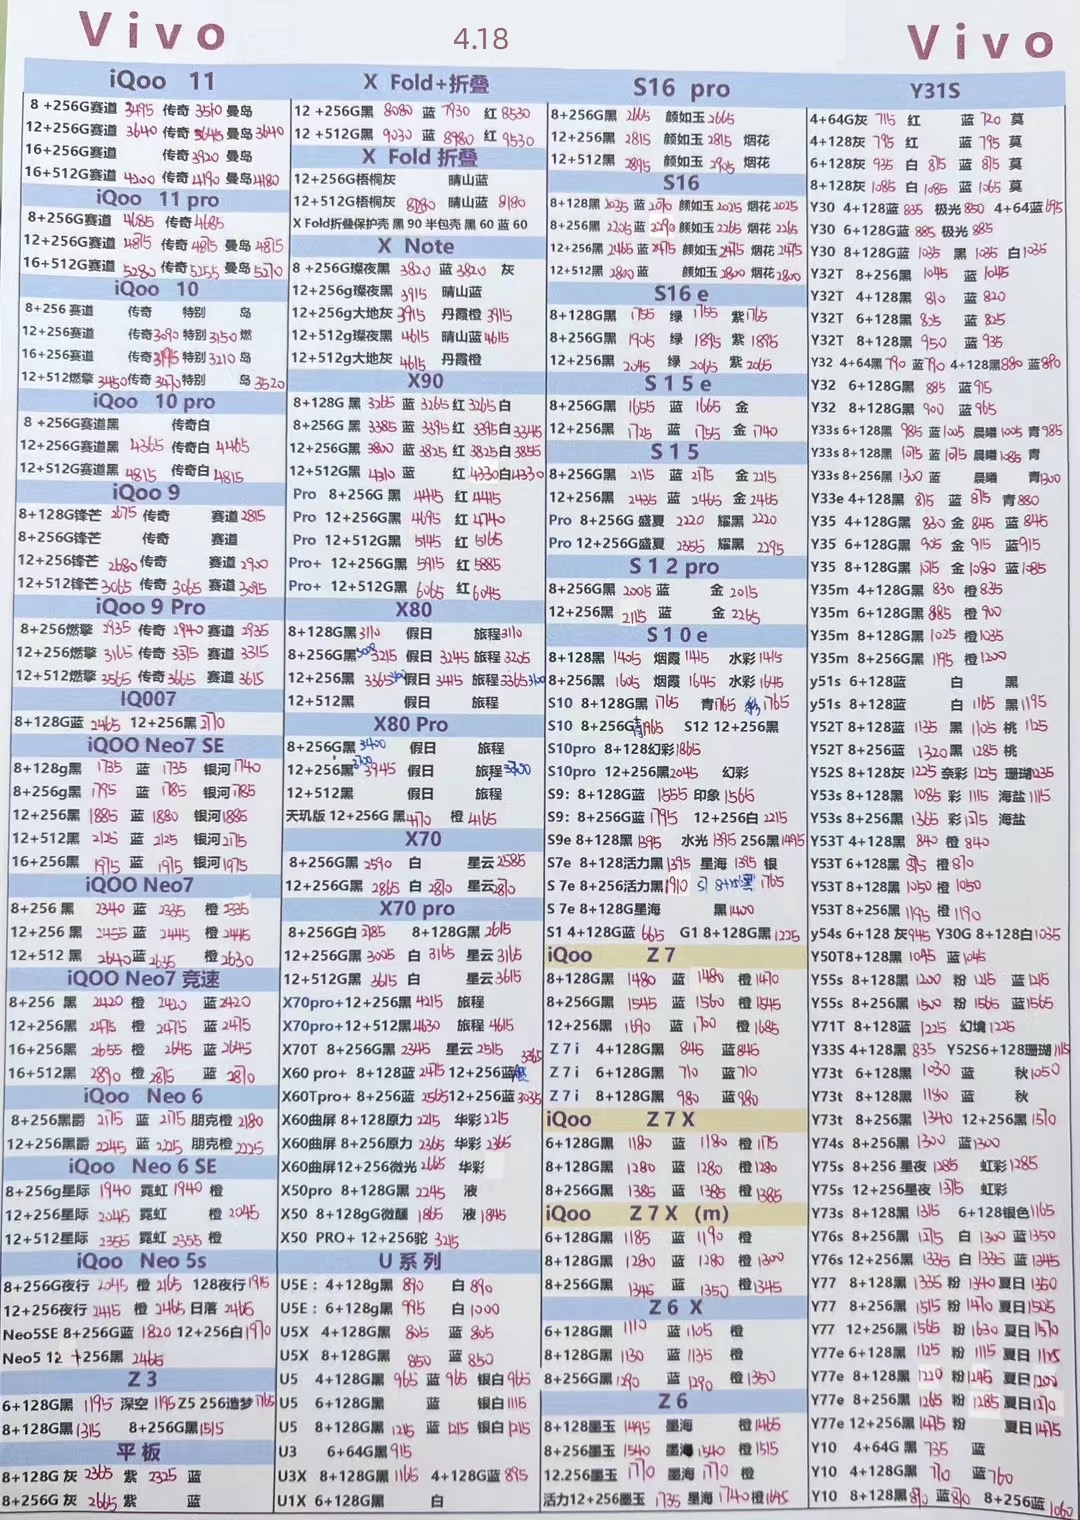 Vivo
4.18
Vivo
iQoo 11
8 +256G赛道 3495 传奇 3510 曼岛
12+256G赛道 3640 传奇 3645 曼岛 3640
16+256G 传奇 3920 曼岛
16+512G赛道 4200 传奇 4190 曼岛 4180
iQoo 11 pro
8 +256G赛道 4685 传奇 4685
12+256G赛道 4815 传奇 4815 曼岛 4815
16+512G赛道 5280 传奇 5255 曼岛 5270
iQoo 10
8+256 赛道 传奇 特别 岛
12+256 赛道 传奇 3090 特别 3150 燃
16+256 赛道 传奇 3195 特别 3210 岛
12+512燃擎 3450 传奇 3470 特别 岛 3520
iQoo 10 pro
8 +256G赛道黑 传奇白
12+256G赛道黑 4365 传奇白 4465
12+512G赛道黑 4815 传奇白 4815
iQoo 9
8+128G锋芒 2675 传奇 赛道 2815
8+256G锋芒 传奇 赛道
12+256锋芒 2680 传奇 赛道 2900
12+512锋芒 3065 传奇 3065 赛道 3095
iQoo 9 Pro
8+256燃擎 2935 传奇 2940 赛道 2935
12+256燃擎 3165 传奇 3315 赛道 3315
12+512燃擎 3565 传奇 3665 赛道 3615
IQ007
8+128G蓝 2465 12+256黑 2710
iQOO Neo7 SE
8+128g黑 1735 蓝 1735 银河 1740
8+256g黑 1795 蓝 1785 银河 1785
12+256黑 1885 蓝 1880 银河 1885
12+512黑 2125 蓝 2125 银河 2175
16+256黑 1975 蓝 1975 银河 1975
iQOO Neo7
8+256 黑 2340 蓝 2335 橙 2335
12+256 黑 2455 蓝 2445 橙 2445
12+512 黑 2640 蓝 2635 橙 2630
iQOO Neo7 竞速
8+256 黑 2420 橙 2420 蓝 2420
12+256黑 2475 橙 2475 蓝 2475
16+256黑 2655 橙 2645 蓝 2645
16+512黑 2890 橙 2875 蓝 2870
iQoo Neo 6
8+256黑爵 2175 蓝 2175 朋克橙 2180
12+256黑爵 2245 蓝 2225 朋克橙 2225
iQoo Neo 6 SE
8+256g星际 1940 霓虹 1940 橙
12+256星际 2045 霓虹 橙 2045
12+512星际 2355 霓虹 2355 橙
iQoo Neo 5s
8+256G夜行 2045 橙 2165 128夜行 1915
12+256夜行 2415 橙 2465 日落 2465
Neo5SE 8+256G蓝 1820 12+256白 1970
Neo5 12 +256黑 2465
Z 3
6+128G黑 1195 深空 1195 Z5 256造梦 1765
8+128G黑 1315 8+256G黑 1515
平板
8+128G 灰 2365 紫 2325 蓝
8+256G 灰 2665 紫 蓝
X Fold+折叠
12 +256G黑 8080 蓝 7930 红 8530
12 +512G黑 9030 蓝 8980 红 9530
X Fold 折叠
12+256G梧桐灰 晴山蓝
12+512G梧桐灰 8180 晴山蓝 8180
X Fold折叠保护壳 黑 90 半包壳 黑 60 蓝 60
X Note
8 +256G璨夜黑 3820 蓝 3820 灰
12+256g璨夜黑 3915 晴山蓝
12+256g大地灰 3915 丹霞橙 3915
12+512g璨夜黑 4615 晴山蓝 4615
12+512g大地灰 4615 丹霞橙
X90
8+128G 黑 3265 蓝 3265 红 3265 白
8+256G 黑 3385 蓝 3395 红 3395 白 3345
12+256G黑 3800 蓝 3825 红 3825 白 3855
12+512G黑 4310 蓝 红 4330 白 4330
Pro 8+256G 黑 4415 红 4415
Pro 12+256G黑 4695 红 4740
Pro 12+512G黑 5145 红 5165
Pro+ 12+256G黑 5915 红 5885
Pro+ 12+512G黑 6065 红 6045
X80
8+128G黑 3110 假日 旅程 3110
8+256G黑 3215 假日 3245 旅程 3205
12+256黑 3365 假日 3415 旅程 3365
12+512黑 假日 旅程
X80 Pro
8+256G黑 3400 假日 旅程
12+256黑 3700 3945 假日 旅程 3700
12+512黑 假日 旅程
天玑版 12+256G 黑 4170 橙 4165
X70
8+256G黑 2590 白 星云 2585
12+256G黑 2865 白 2870 星云 2870
X70 pro
8+256G白 2785 8+128G黑 2615
12+256G黑 3005 白 3165 星云 3165
12+512G黑 3615 白 星云 3615
X70pro+12+256黑 4215 旅程
X70pro+12+512黑 4630 旅程 4615
X70T 8+256G黑 2345 星云 2515
X60 pro+ 8+128蓝 2475 12+256蓝 3365
X60Tpro+ 8+256蓝 2565 12+256蓝 3035
X60曲屏 8+128原力 2215 华彩 2215
X60曲屏 8+256原力 2365 华彩 2365
X60曲屏12+256微光 2665 华彩
X50pro 8+128G黑 2245 液
X50 8+128gG微醺 1865 液 1845
X50 PRO+ 12+256驼 3215
U 系列
U5E：4+128g黑 890 白 890
U5E：6+128g黑 995 白 1000
U5X 4+128G黑 805 蓝 805
U5X 8+128G黑 850 蓝 850
U5 4+128G黑 965 蓝 965 银白 965
U5 6+128G黑 蓝 银白 1115
U5 8+128G黑 1215 蓝 1215 银白 1215
U3 6+64G黑 915
U3X 8+128G黑 1165 4+128G蓝 895
U1X 6+128G黑 白
S16 pro
8+256G黑 2665 颜如玉 2665
12+256黑 2815 颜如玉 2815 烟花
12+512黑 2895 颜如玉 2905 烟花
S16
8+128黑 2035 蓝 2070 颜如玉 2025 烟花 2025
8+256黑 2205 蓝 2290 颜如玉 2265 烟花 2265
12+256黑 2465 蓝 2475 颜如玉 2475 烟花 2475
12+512黑 2800 蓝 颜如玉 2800 烟花 2800
S16 e
8+128G黑 1755 绿 1755 紫 1765
8+256G黑 1905 绿 1895 紫 1895
12+256G黑 2045 绿 2065 紫 2065
S 1 5 e
8+256G黑 1655 蓝 1665 金
12+256黑 1725 蓝 1755 金 1740
S 1 5
8+256G黑 2115 蓝 2175 金 2215
12+256黑 2435 蓝 2465 金 2465
Pro 8+256G 盛夏 2220 耀黑 2220
Pro 12+256G盛夏 2355 耀黑 2295
S 1 2 pro
8+256G黑 2005 蓝 金 2015
12+256黑 2115 蓝 金 2265
S 1 0 e
8+128黑 1405 烟霞 1415 水彩 1415
8+256黑 1605 烟霞 1645 水彩 1645
S10 8+128G黑 1765 青 1765 彩 1765
S10 8+256G青 1965 S12 12+256黑
S10pro 8+128幻彩 1865
S10pro 12+256黑 2045 幻彩
S9：8+128G蓝 1555 印象 1565
S9：8+256G蓝 1795 12+256白 2215
S9e 8+128黑 1395 水光 1395 256黑 1495
S7e 8+128活力黑 1395 星海 1395 银
S 7e 8+256活力黑 1910 S7 8+128黑 1765
S 7e 8+128G星海 黑 1400
S1 4+128G蓝 665 G1 8+128G黑 1225
iQoo Z 7
8+128G黑 1480 蓝 1480 橙 1470
8+256G黑 1545 蓝 1560 橙 1545
12+256黑 1690 蓝 1700 橙 1685
Z 7 i 4+128G黑 845 蓝 845
Z 7 i 6+128G黑 710 蓝 710
Z 7 i 8+128G黑 980 蓝 980
iQoo Z 7 X
6+128G黑 1180 蓝 1180 橙 1175
8+128G黑 1280 蓝 1280 橙 1280
8+256G黑 1385 蓝 1385 橙 1385
iQoo Z 7 X (m)
6+128G黑 1185 蓝 1190 橙
8+128G黑 1280 蓝 1280 橙 1300
8+256G黑 1345 蓝 1350 橙 1345
Z 6 X
6+128G黑 1110 蓝 1105 橙
8+128G黑 1130 蓝 1135 橙
8+256G黑 1290 蓝 1290 橙 1350
Z 6
8+128墨玉 1495 墨海 橙 1465
8+256墨玉 1540 墨海 1540 橙 1515
12.256墨玉 1770 墨海 1770 橙
活力12+256墨玉 1735 星海 1740 橙 1645
Y31S
4+64G灰 715 红 蓝 720 莫
4+128灰 795 红 蓝 795 莫
6+128灰 935 白 875 蓝 875 莫
8+128灰 1085 白 1085 蓝 1065 莫
Y30 4+128蓝 835 极光 850 4+64蓝 695
Y30 6+128G蓝 885 极光 885
Y30 8+128G蓝 1035 黑 1035 白 1035
Y32T 8+256黑 1045 蓝 1045
Y32T 4+128黑 810 蓝 820
Y32T 6+128黑 825 蓝 825
Y32T 8+128黑 950 蓝 935
Y32 4+64黑 790 蓝 790 4+128黑 880 蓝 890
Y32 6+128G黑 885 蓝 915
Y32 8+128G黑 900 蓝 965
Y33s 6+128黑 985 蓝 1005 晨曦 1005 青 985
Y33s 8+128黑 1075 蓝 1075 晨曦 1085 青
Y33s 8+256黑 1300 蓝 晨曦 青 1300
Y33e 4+128黑 875 蓝 875 青 880
Y35 4+128G黑 830 金 845 蓝 845
Y35 6+128G黑 905 金 915 蓝 915
Y35 8+128G黑 1075 金 1080 蓝 1085
Y35m 4+128G黑 830 橙 835
Y35m 6+128G黑 885 橙 900
Y35m 8+128G黑 1025 橙 1035
Y35m 8+256G黑 1195 橙 1200
y51s 6+128蓝 白 黑
y51s 8+128蓝 白 1165 黑 1195
Y52T 8+128蓝 1135 黑 1105 桃 1125
Y52T 8+256蓝 1320 黑 1285 桃
Y52S 8+128灰 1225 奈彩 1225 珊瑚 1235
Y53s 8+128黑 1085 彩 1115 海盐 1115
Y53s 8+256黑 1365 彩 1375 海盐
Y53T 4+128黑 840 橙 840
Y53T 6+128黑 875 橙 870
Y53T 8+128黑 1050 橙 1050
Y53T 8+256黑 1195 橙 1190
y54s 6+128 灰 945 Y30G 8+128白 1035
Y50T8+128黑 1045 蓝 1045
Y55s 8+128黑 1200 粉 1215 蓝 1215
Y55s 8+256黑 1500 粉 1565 蓝 1565
Y71T 8+128蓝 1225 幻境 1225
Y33S 4+128黑 835 Y52S6+128珊瑚 1115
Y73t 6+128黑 1030 蓝 秋 1050
Y73t 8+128黑 1180 蓝 秋
Y73t 8+256黑 1340 12+256黑 1570
Y74s 8+256黑 1300 蓝 1300
Y75s 8+256 星夜 1285 虹彩 1285
Y75s 12+256星夜 1375 虹彩
Y73s 8+128黑 1315 6+128银色 1165
Y76s 8+256黑 1275 白 1300 蓝 1350
Y76s 12+256黑 1335 白 1335 蓝 1345
Y77 8+128黑 1335 粉 1340 夏日 1360
Y77 8+256黑 1515 粉 1470 夏日 1505
Y77 12+256黑 1565 粉 1630 夏日 1570
Y77e 6+128黑 1125 粉 1115 夏日 1115
Y77e 8+128黑 1220 粉 1245 夏日 1200
Y77e 8+256黑 1265 粉 1285 夏日 1270
Y77e 12+256黑 1475 粉 夏日 1475
Y10 4+64G 黑 735 蓝
Y10 4+128G黑 710 蓝 760
Y10 8+128黑 870 蓝 870 8+256蓝 1060